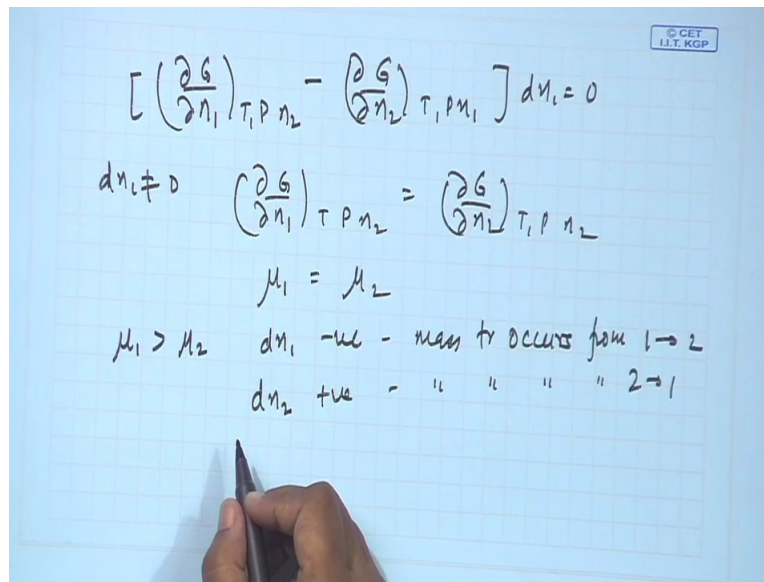 © CET
I.I.T. KGP
[ (∂G/∂n₁) T, P n₂ - (∂G/∂n₂) T, P n₁ ] dn₁ = 0
dn₁ ≠ 0 (∂G/∂n₁) T P n₂ = (∂G/∂n₂) T, P n₂
μ₁ = μ₂
μ₁ > μ₂ dn₁ -ve - mass tr occurs from 1→2
dn₂ +ve - " " " " 2→1